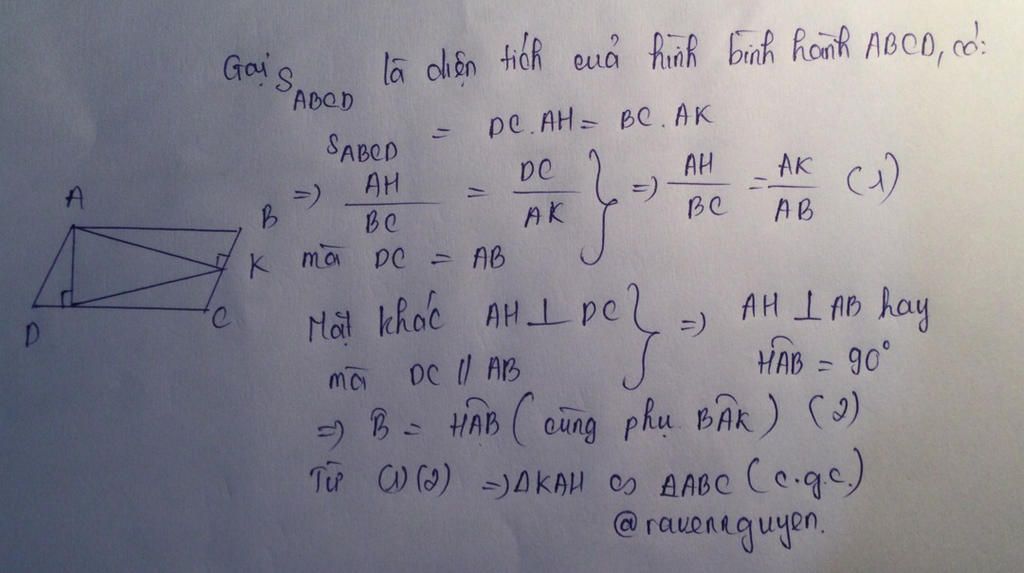 Gọi S_ABCD là diện tích cuả hình bình hành ABCD, có:
S_ABCD = DC.AH = BC.AK
=> AH/BC = DC/AK } => AH/BC = AK/AB (1)
mà DC = AB
Mặt khác AH ⊥ DC } => AH ⊥ AB hay
mà DC // AB HAB = 90°
=> B = HAB (cùng phụ BAK) (2)
Từ (1)(2) => ΔKAH ∽ ΔABC (c.g.c.)
@ravennguyen.
A
B
K
D
C